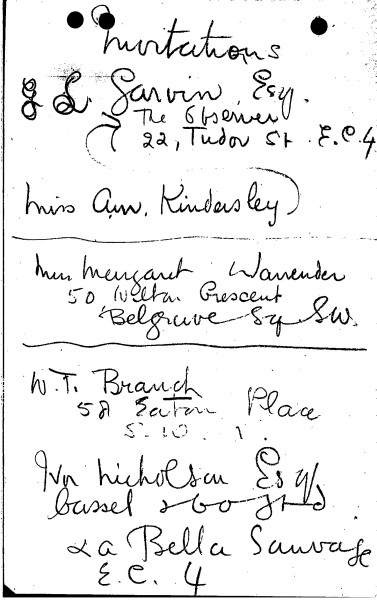 Invitations
J L. Garvin, Esq.
The Observer
22, Tudor St. E.C.4
Miss Ann. Kindersley
Miss Margaret Warrender
50 Wilton Crescent
Belgrave Sq S.W.
W. T. Branch
58 Eaton Place
S. 10. 1.
Ivor Nicholson Esq
Cassel &
La Bella Sauvage
E.C. 4